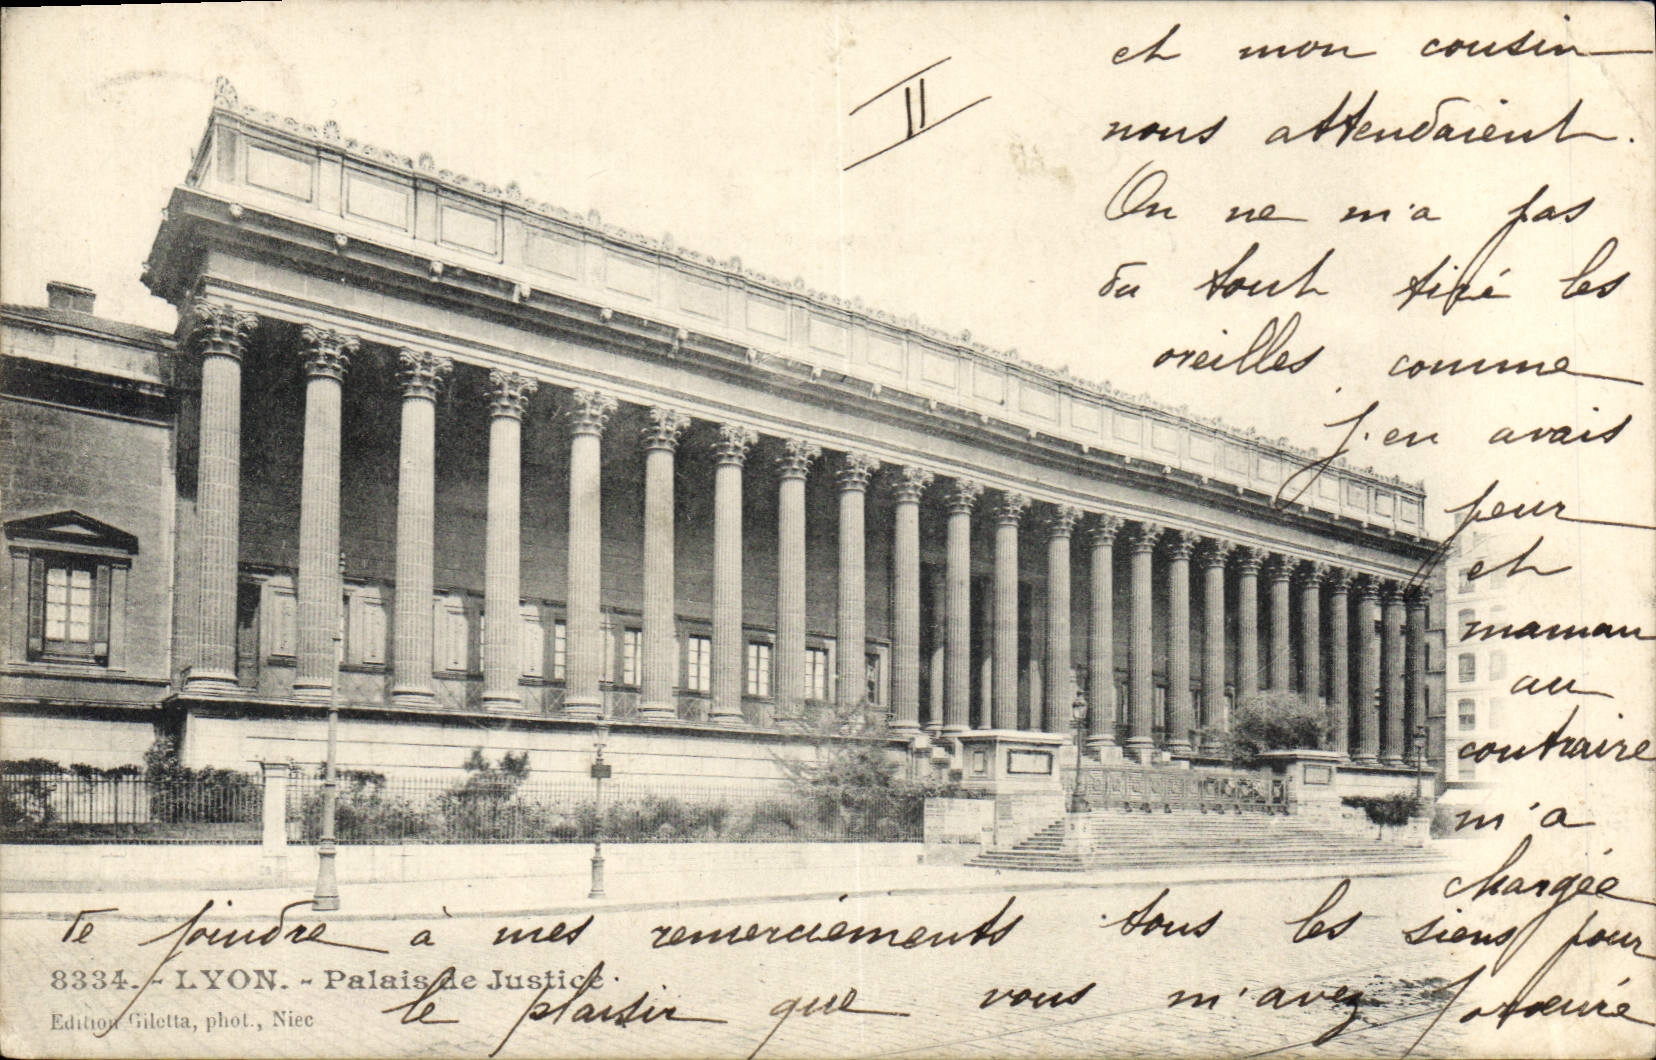 II
et mon cousin
nous attendaient.
On ne m'a pas
du tout tiré les
oreilles comme
j'en avais
peur
et
maman
au
contraire
m'a
chargée
de joindre à mes remerciements tous les siens pour
le plaisir que vous m'avez procuré
8334. - LYON. - Palais de Justice
Edition Giletta, phot., Nice